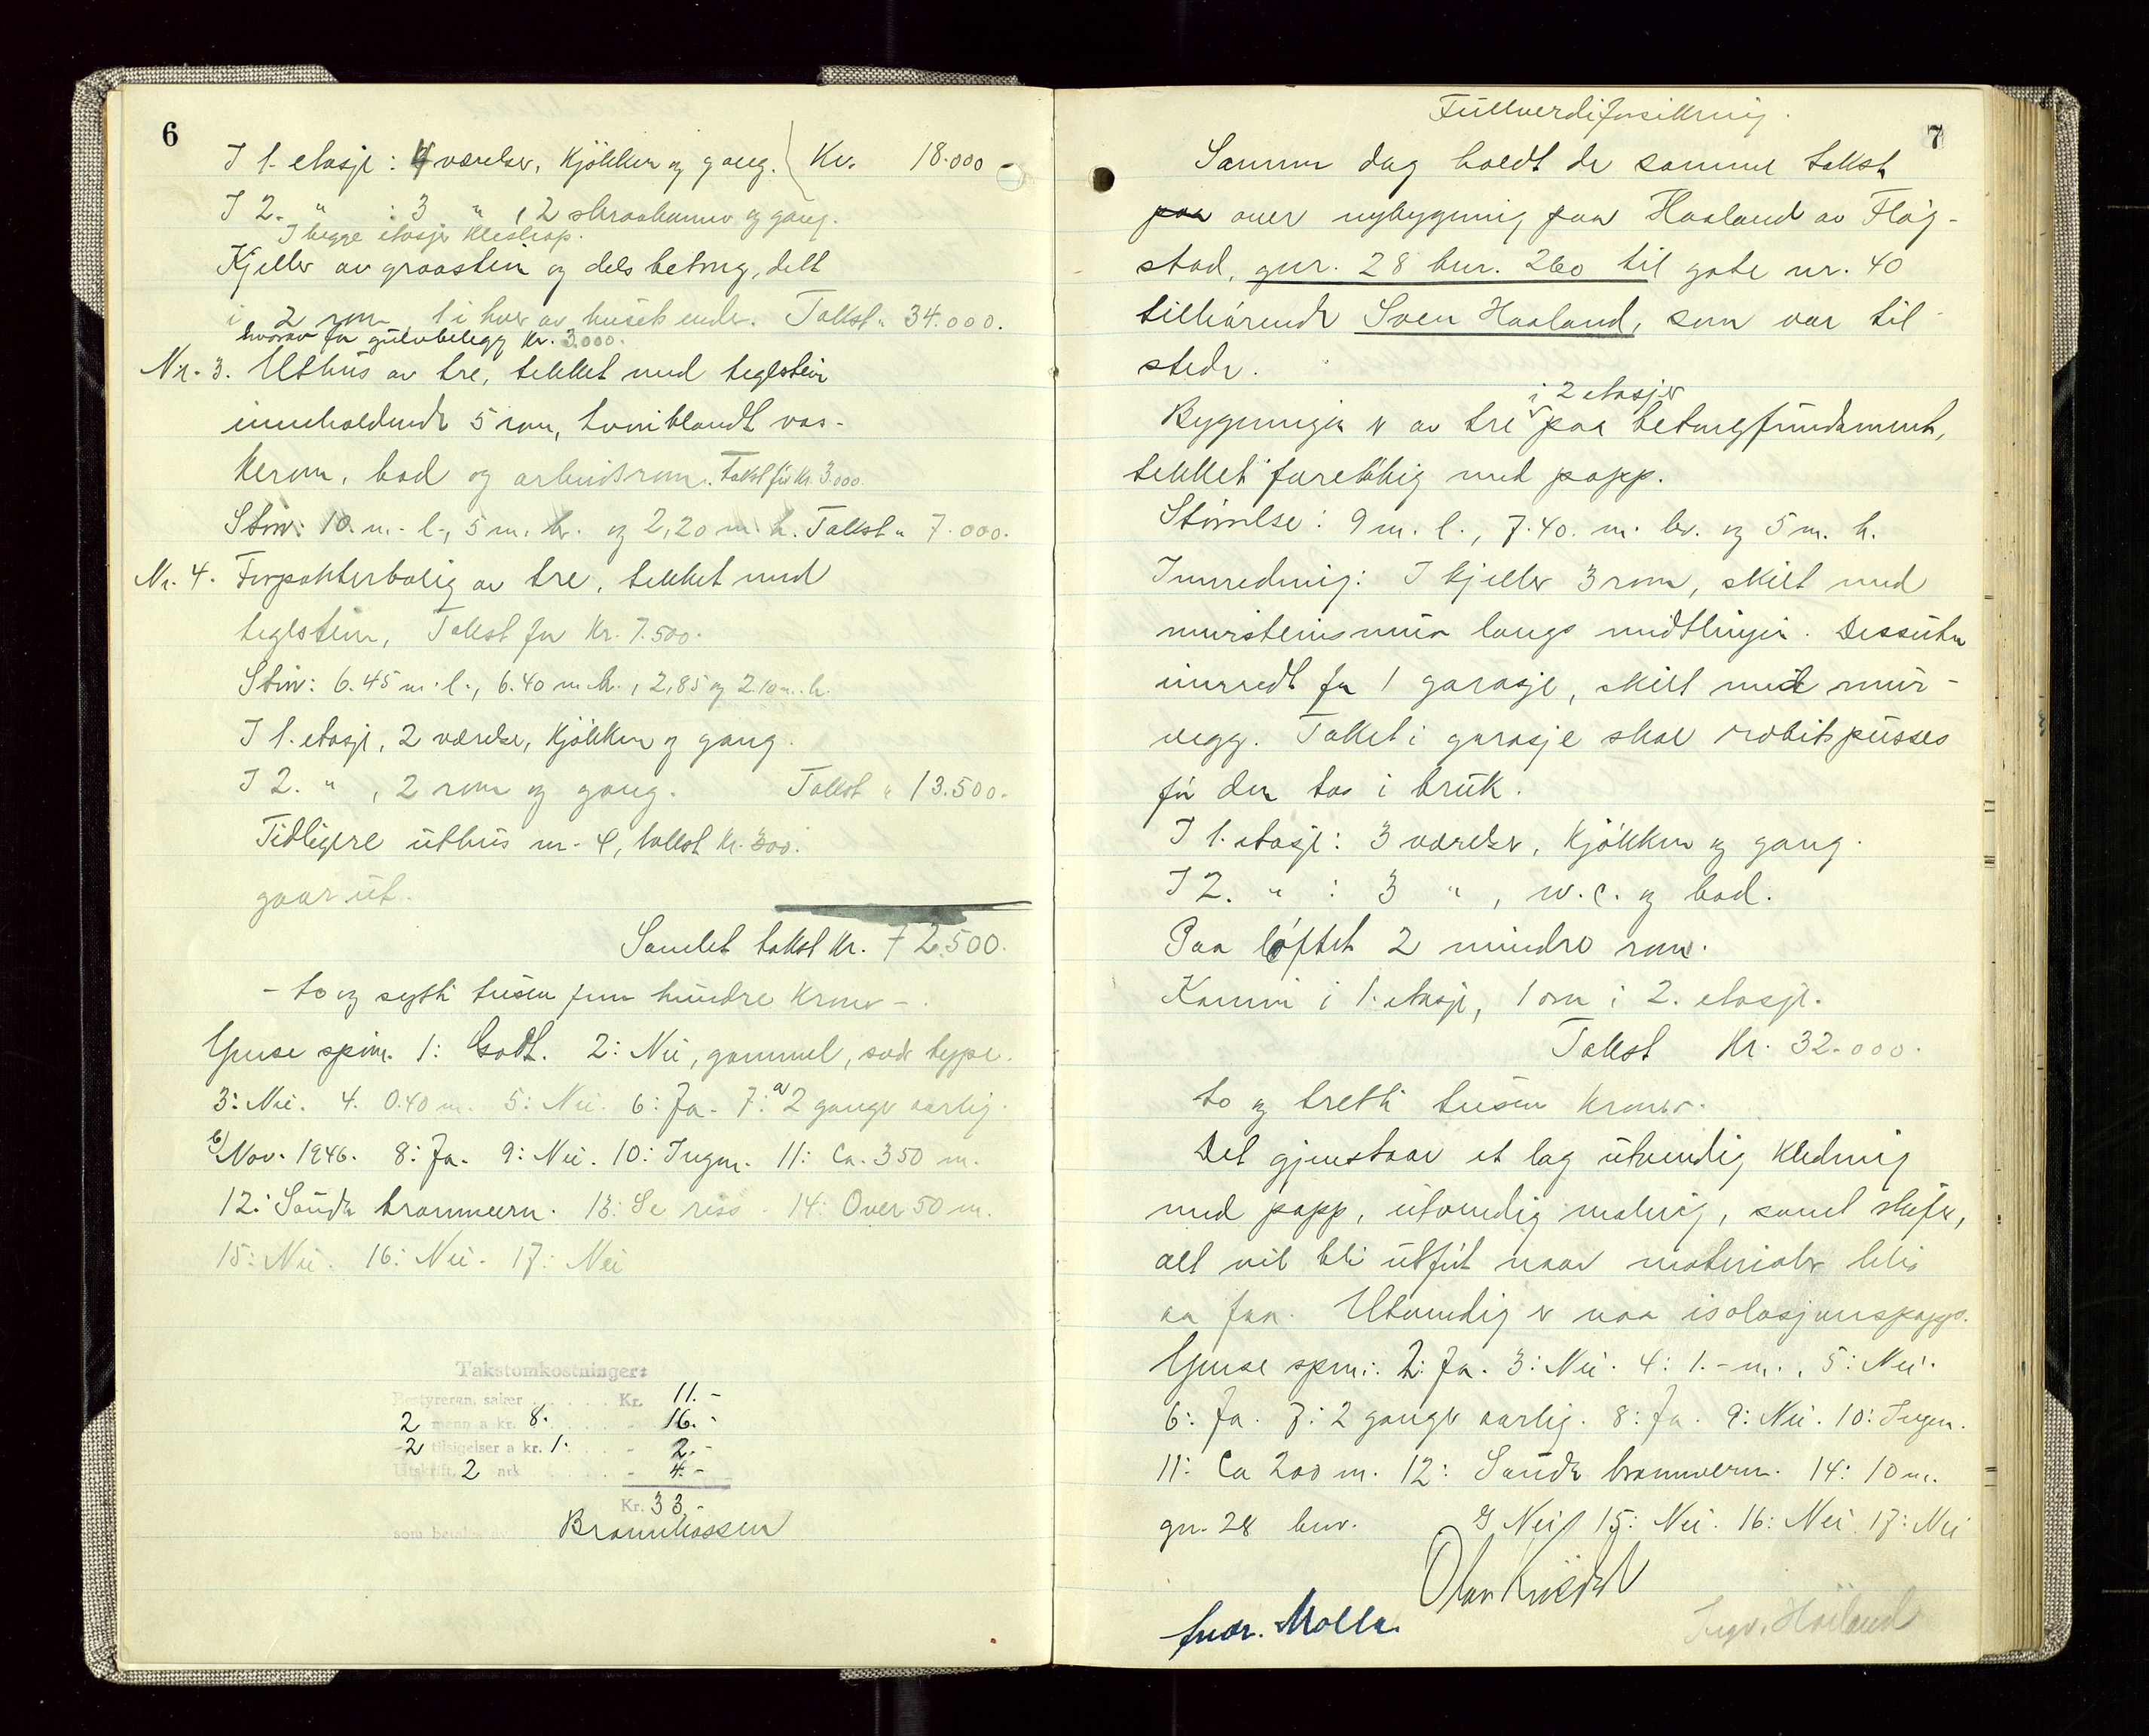 6
I 1. etasje: 4 værelser, kjøkken og gang. Kr. 18.000 -
I 2. " : 3 " , 2 skraakammer og gang.
I begge etasjer kleskap.
Kjeller av graastein og dels betong, delt
i 2 rom, 1 i hver av husets ender. Takst " 34.000.
hvorav for gulvbelegg kr. 3.000.
Nr. 3. Uthus av tre, tekket med teglstein
inneholdende 5 rom, hvoriblandt vas-
kerom, bad og arbeidsrom. Takst før kr. 3.000.
Størr: 10. m. l., 5 m. br. og 2,20 m. h. Takst " 7.000.
Nr. 4. Forpakterbolig av tre, tekket med
teglstein, Takst før Kr. 7.500.
Størr: 6.45 m. l., 6.40 m. br., 2,85 og 2.10 m. h.
I 1. etasje, 2 værelser, kjøkken og gang.
I 2. " , 2 rom og gang. Takst " 13.500.
Tidligere uthus nr. 4, takst kr. 300.
gaar ut.
Samlet takst kr. 72.500.
- to og sytti tusen fem hundre kroner -
Gruse spm. 1: Godt. 2: Nei, gammel, god type.
3: Nei. 4. 0.40 m. 5: Nei. 6: Ja. 7: a) 2 ganger aarlig.
b) Nov. 1946. 8: Ja. 9: Nei. 10: Ingen. 11: Ca. 350 m.
12: Sandr brannvern. 13: Se riss. 14: Over 50 m.
15: Nei. 16: Nei. 17: Nei
Takstomkostninger:
Bestyreren, salær . . . . . Kr. 11.-
2 menn a kr. 8. . . . . - 16.-
2 tilsigelser a kr. 1. . . . - 2.-
Utskrift, 2 ark . . . . - 4.-
Kr. 33.-
som betales av Brannkassen
Fullverdiforsikring.
7
Samme dag holdt de samme takst
paa over nybygning paa Haaland av Fløg-
stad, gnr. 28 bnr. 260 til gate nr. 40
tilhørende Sven Haaland, som var til
stede.
i 2 etasjer
Bygningen er av tre paa betongfundament,
tekket foreløbig med papp.
Størrelse: 9 m. l., 7.40. m. br. og 5 m. h.
Innredning: I kjeller 3 rom, skilt med
mursteinsmur langs midtlinjen. Dessuten
innredt for 1 garasje, skilt med mur-
vegg. Taket i garasje skal rabitspusses
før den tas i bruk.
I 1. etasje: 3 værelser, kjøkken og gang.
I 2. " : 3 " , w.c. og bad.
Paa loftet 2 mindre rom.
Kamin i 1. etasje, 1 ovn i 2. etasje.
Takst Kr. 32.000.
to og tretti tusen kroner.
Det gjenstaar et lag utvendig kledning
med papp, utvendig maling, samt skifer,
alt vil bli utført naar materialer blir
aa faa. Utvendig er naa isolasjonspapp.
Gruse spm: 2: Ja. 3: Nei. 4: 1.- m. , 5: Nei.
6: Ja. 7: 2 ganger aarlig. 8: Ja. 9: Nei. 10: Ingen.
11: Ca 200 m. 12: Sandr brannvern. 14: 10 m.
gn. 28 bnr. Nei 15: Nei. 16: Nei. 17: Nei
Olav
Ingv. Høiland